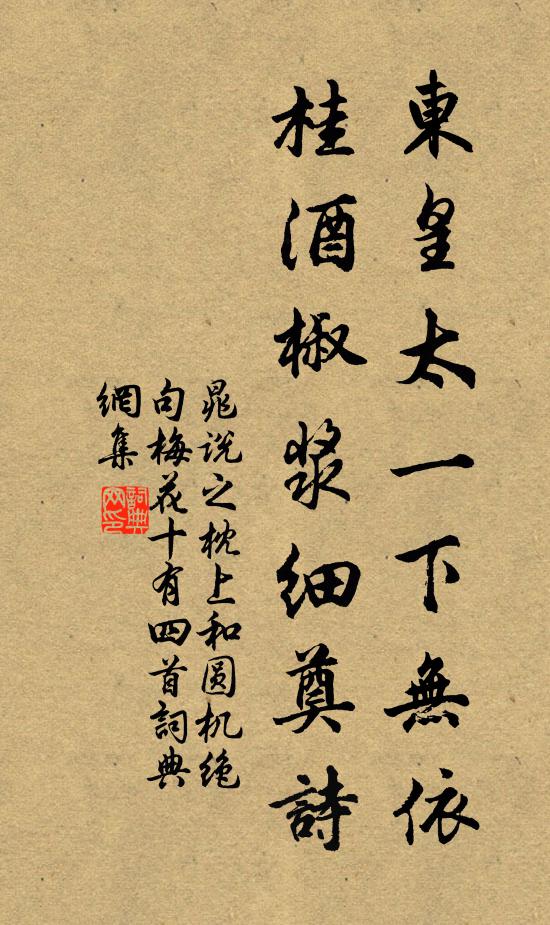 東皇太一下無依
桂酒椒漿細奠詩
晁说之枕上和圆机绝
句梅花十有四首詞典
網集
詞典網印